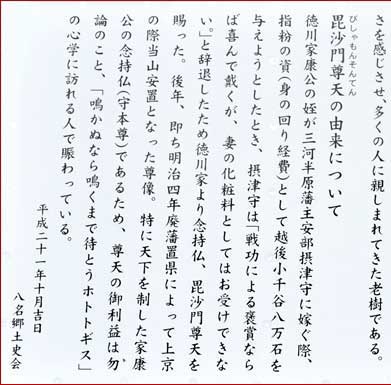 さを感じさせ、多くの人に親しまれてきた老樹である。
びしゃもんそんてん
毘沙門尊天の由来について
徳川家康公の姪が三河半原藩主安部摂津守に嫁ぐ際、
指粉の資(身の回り経費)として越後小千谷八万石を
与えようとしたとき、摂津守は「戦功による褒賞なら
ば喜んで戴くが、妻の化粧料としてはお受けできな
い。」と辞退したため徳川家より念持仏、毘沙門尊天を
賜った。後年、即ち明治四年廃藩置県によって上京
の際当山安置となった尊像。特に天下を制した家康
公の念持仏(守本尊)であるため、尊天の御利益は勿
論のこと、「鳴かぬなら鳴くまで待とうホトトギス」
の心学に訪れる人で賑わっている。
平成二十一年十月吉日
八名郷土史会